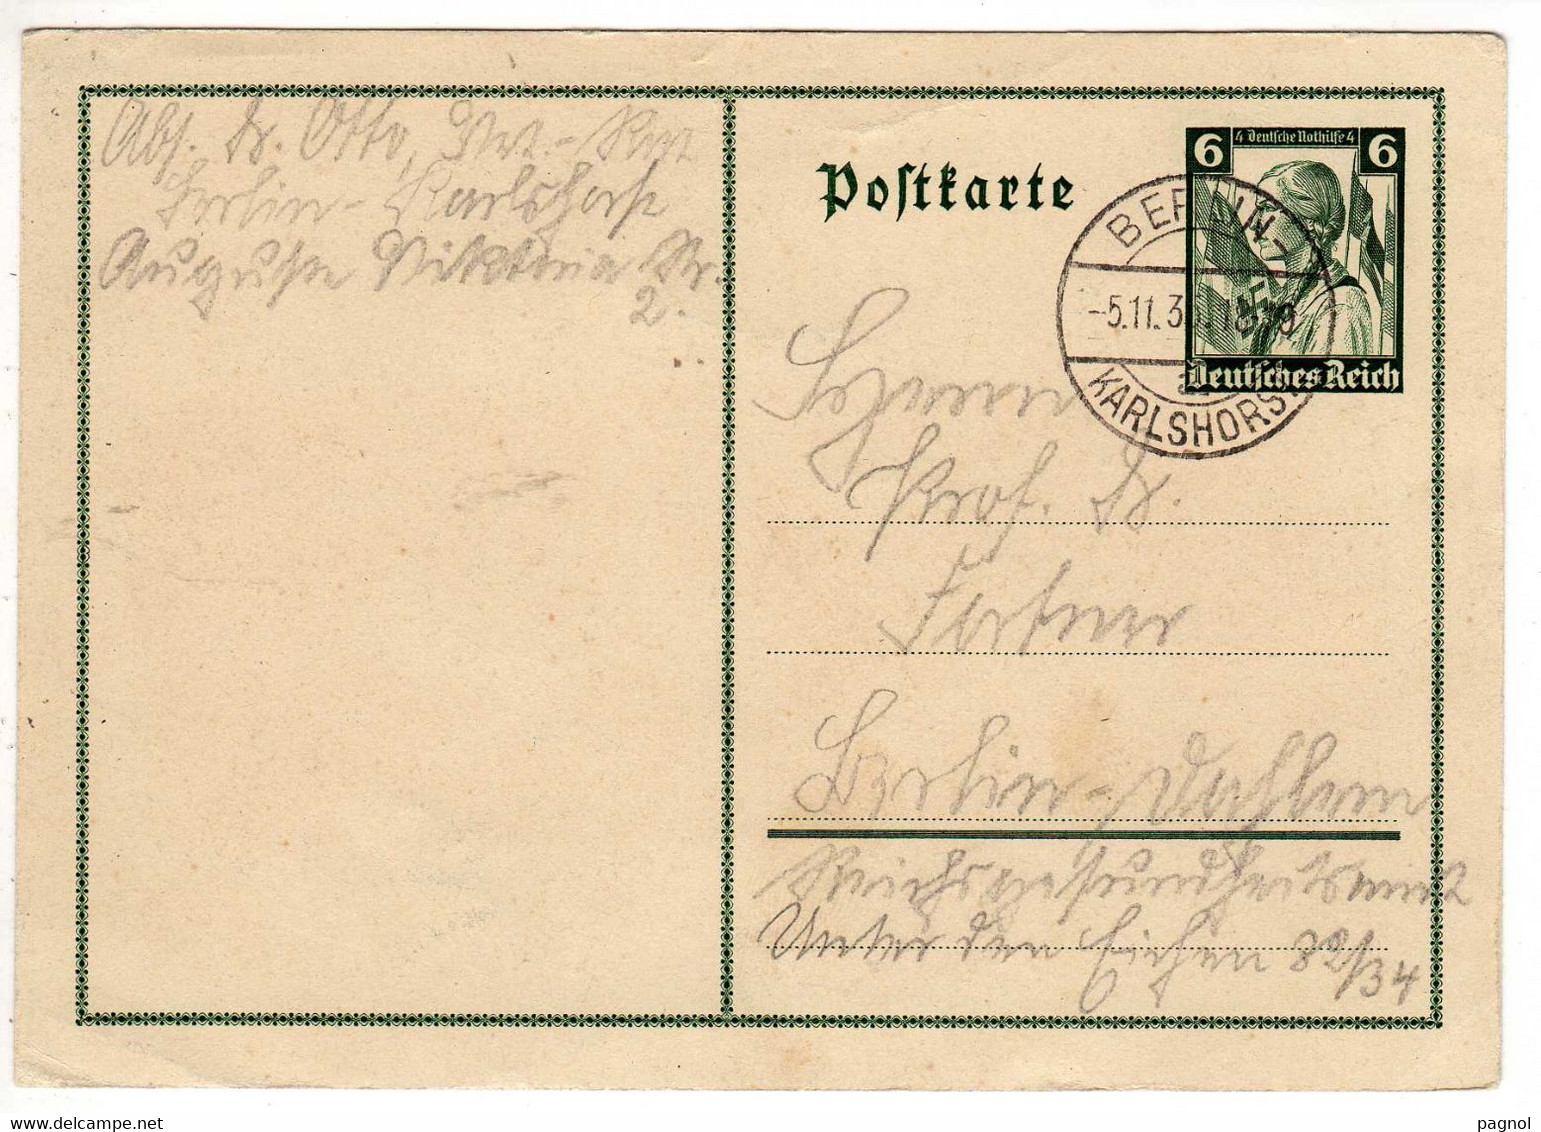 Abs. Dr. Otto,
Berlin-Karlshorst
Auguste Viktoria Str.
2.
Postkarte
6 4 Deutsche Nothilfe 4 6
Deutsches Reich
BERLIN-
-5.11.3
KARLSHORST
Herrn
Prof. Dr.
Berlin-Dahlem
Reichsgesundheitsamt
Unter den Eichen 82/34
www.delcampe.net
pagnol